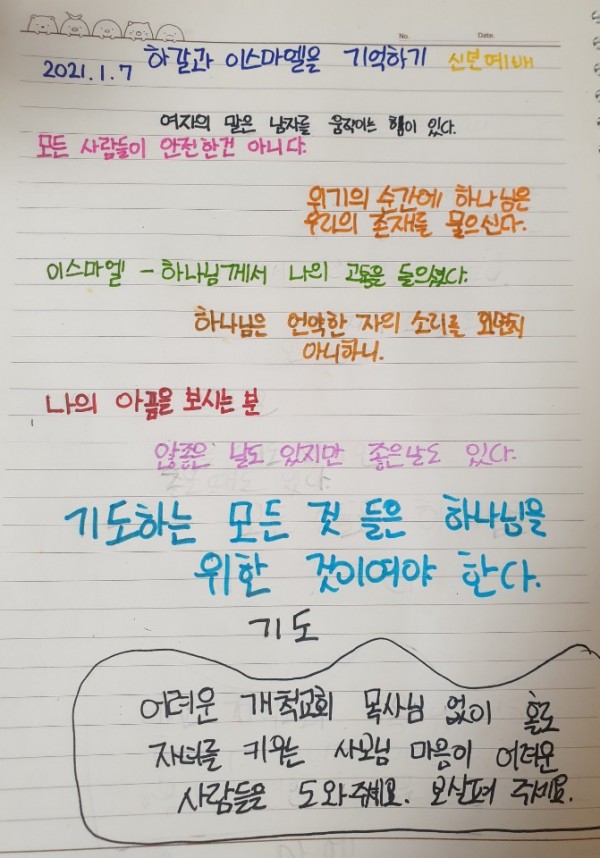 No. Date.
2021.1.7 하갈과 이스마엘을 기억하기 신년예배
여자의 말은 남자를 움직이는 힘이 있다.
모든 사람들이 안전한건 아니다.
위기의 순간에 하나님은
우리의 존재를 물으신다.
이스마엘 - 하나님께서 나의 고통을 들으셨다.
하나님은 언약한 자의 소리를 외면치
아니하니.
나의 아픔을 보시는 분
않좋은 날도 있지만 좋은날도 있다.
기도하는 모든 것 들은 하나님을
위한 것이여야 한다.
기도
어려운 개척교회 목사님 없이 홀로
자녀를 키우는 사모님 마음이 어려운
사람들은 도와주세요. 보살펴 주세요.